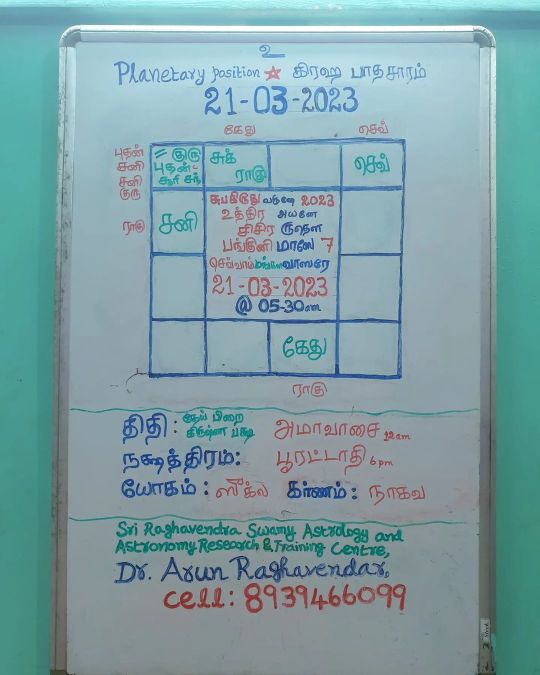 உ
Planetary position ☆ கிரஹ பாதசாரம்
21-03-2023
கேது செவ்
புதன் சனி சனி குரு
ராகு
குரு புதன் சூரி சந்
சுக் ராகு
செவ்
சனி
சுபகிருது வருஷே 2023
உத்திர அயனே
சிசிர ருதௌ
பங்குனி மாஸே 7
செவ்வாய் மங்கள வாஸரே
21-03-2023
@ 05-30am
கேது
ராகு
திதி : தேய் பிறை கிருஷ்ண பக்ஷ அமாவாசை 12am
நக்ஷத்திரம்: பூரட்டாதி 6pm
யோகம் : ஸுக்ல கர்ணம் : நாகவ
Sri Raghavendra Swamy Astrology and
Astronomy Research & Training Centre,
Dr. Arun Raghavendar,
cell: 8939466099